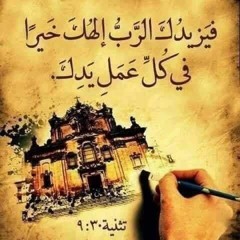 فَيَزيدُكَ الرَّبُّ إِلهُكَ خَيرًا
في كُلِّ عَمَلِ يَدِكَ.
تثنية ٩:٣٠